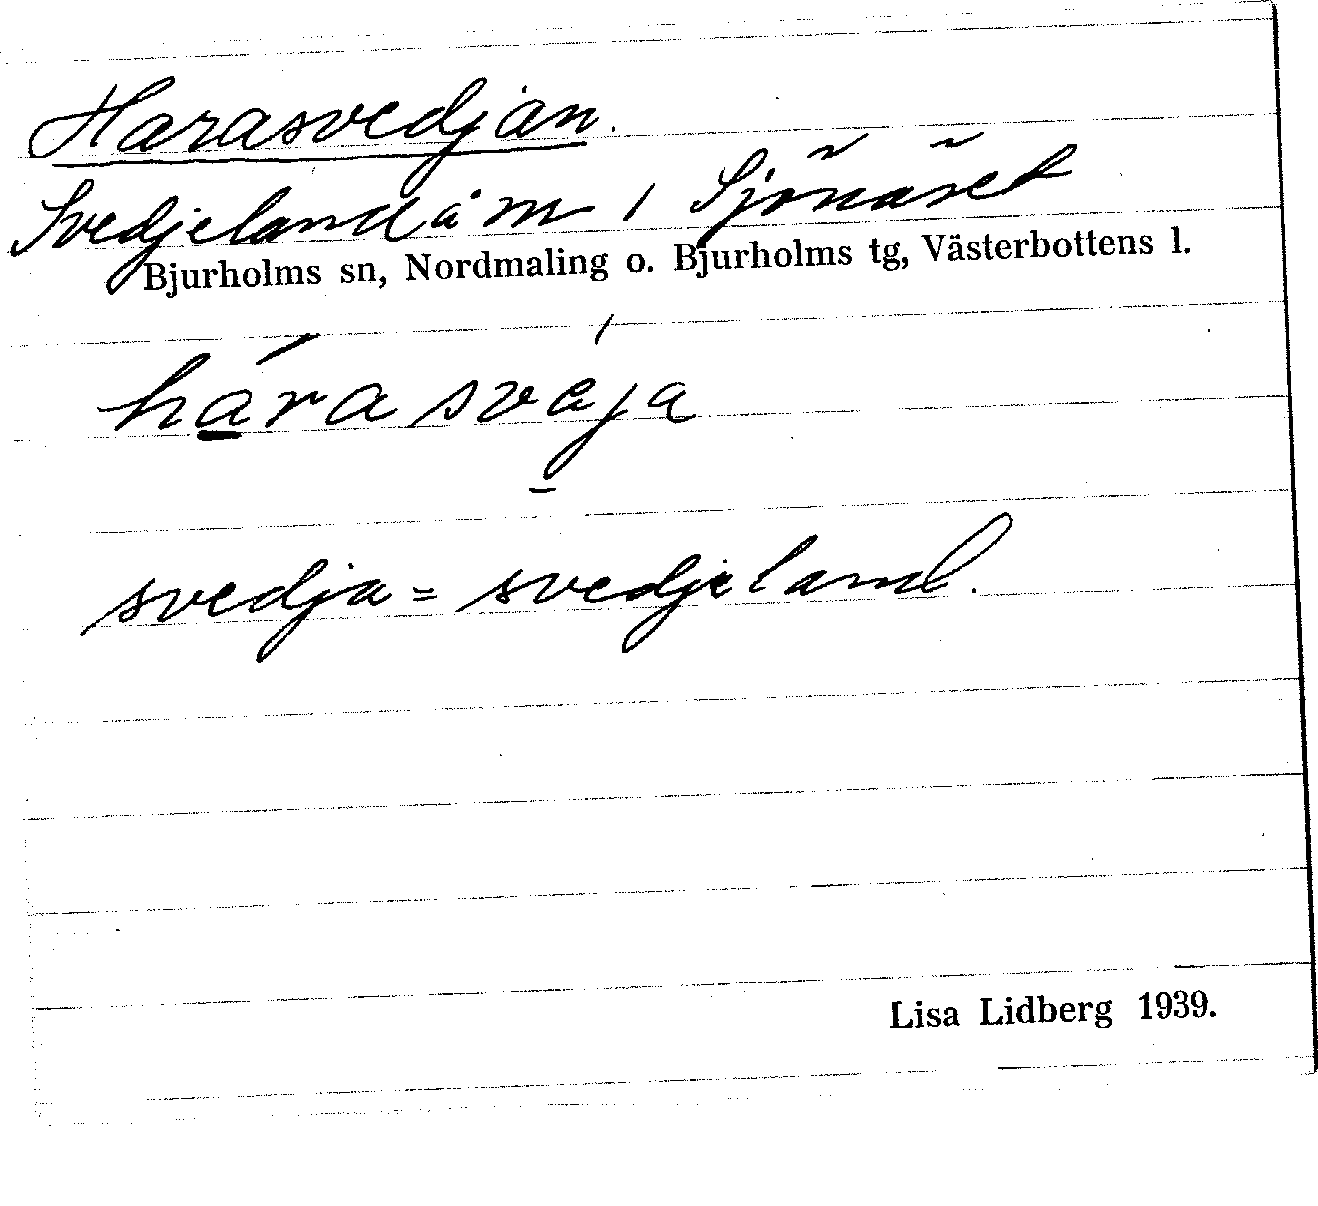 Harasvedjan.
Svedjeland å m 1 Sjönäset
Bjurholms sn, Nordmaling o. Bjurholms tg, Västerbottens l.
hárasvája
svedja = svedjeland.
Lisa Lidberg 1939.